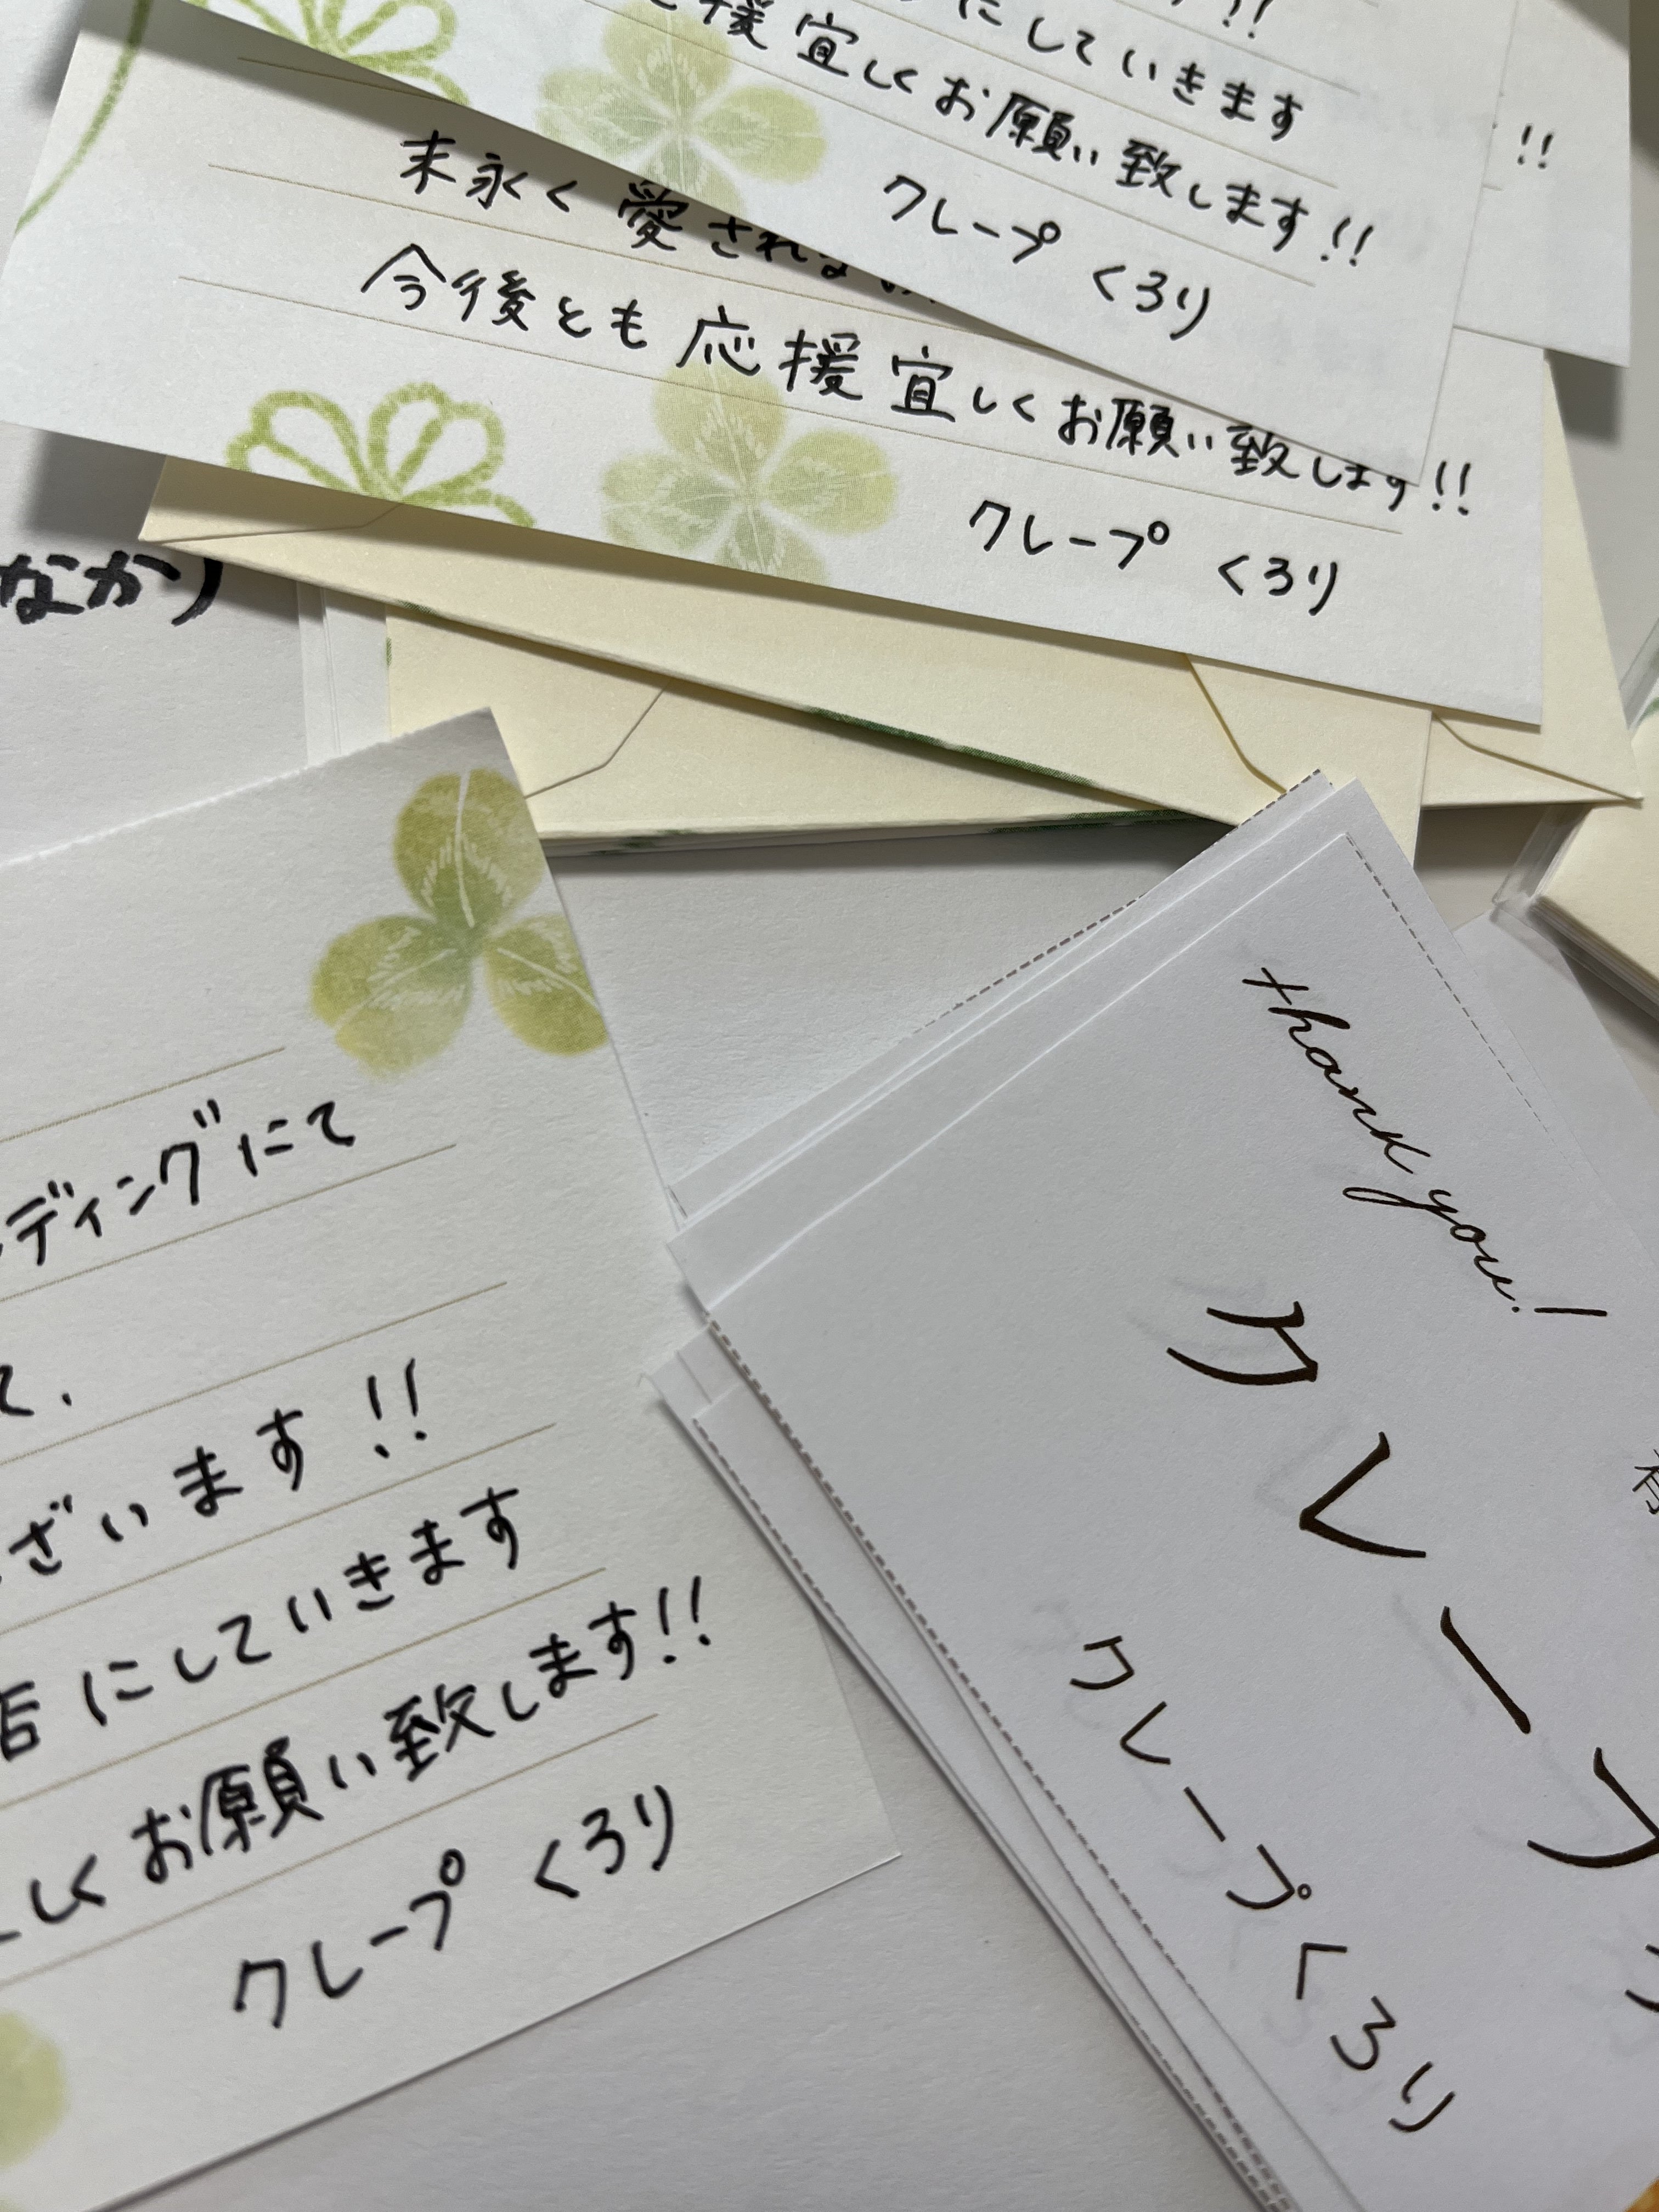 !!
にしていきます
援宜しくお願い致します!!
クレープ くろり
!!
末永く愛され
今後とも応援宜しくお願い致します!!
クレープ くろり
なかり
ディングにて
て、
ざいます!!
店にしていきます
しくお願い致します!!
クレープ くろり
thank you!
クレープ
クレープくろり